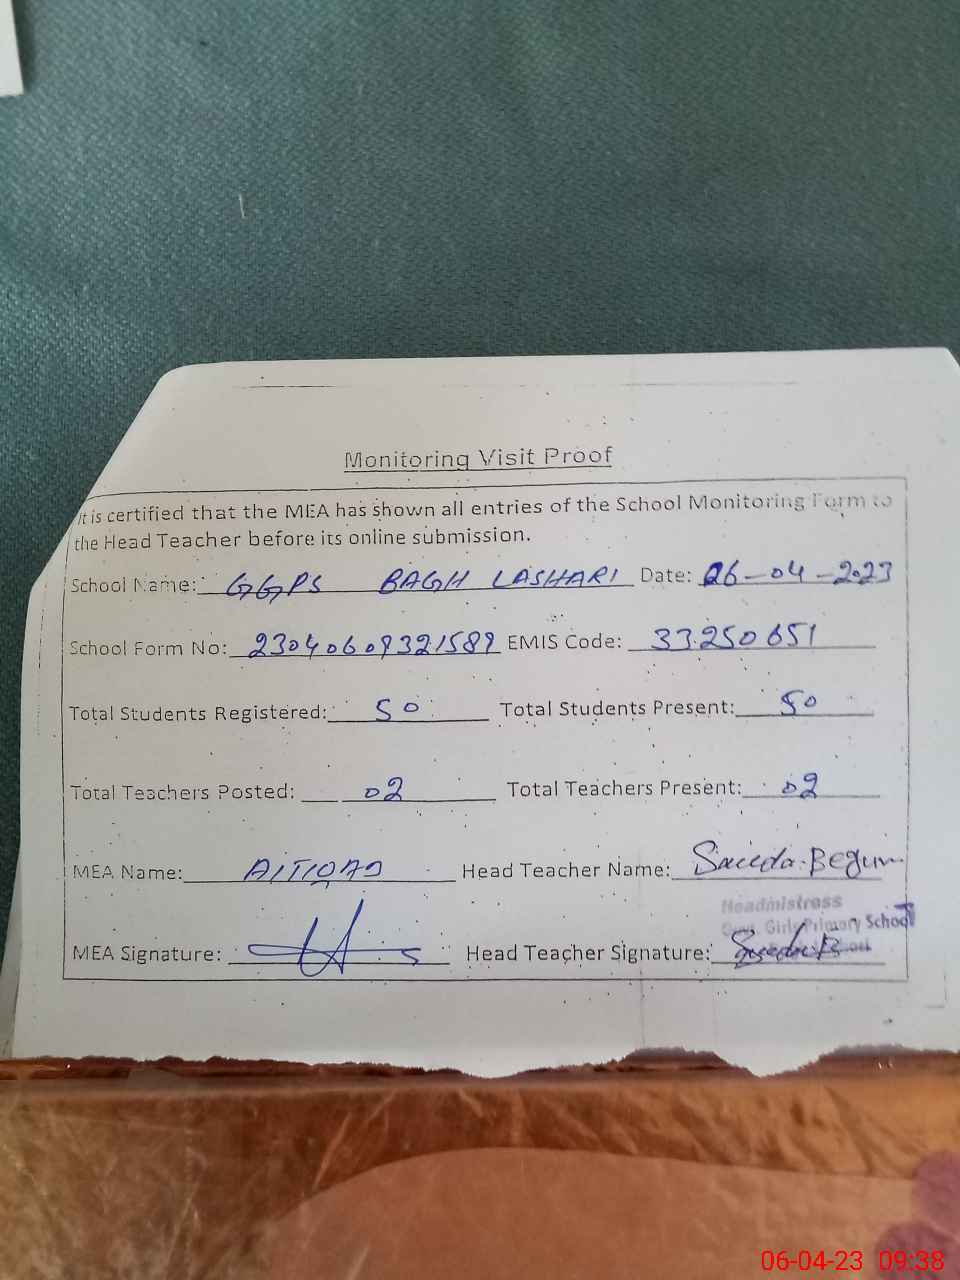 Monitoring Visit Proof
It is certified that the MEA has shown all entries of the School Monitoring Form to
the Head Teacher before its online submission.
School Name: GGPS BAGH LASHARI Date: 06-04-2023
School Form No: 23040609321589 EMIS Code: 33250651
Total Students Registered: 50 Total Students Present: 50
Total Teachers Posted: 02 Total Teachers Present: 02
MEA Name: AITIQAD Head Teacher Name: Saeeda Begum
Headmistress
Govt. Girls Primary School
MEA Signature: Head Teacher Signature:
06-04-23 09:38